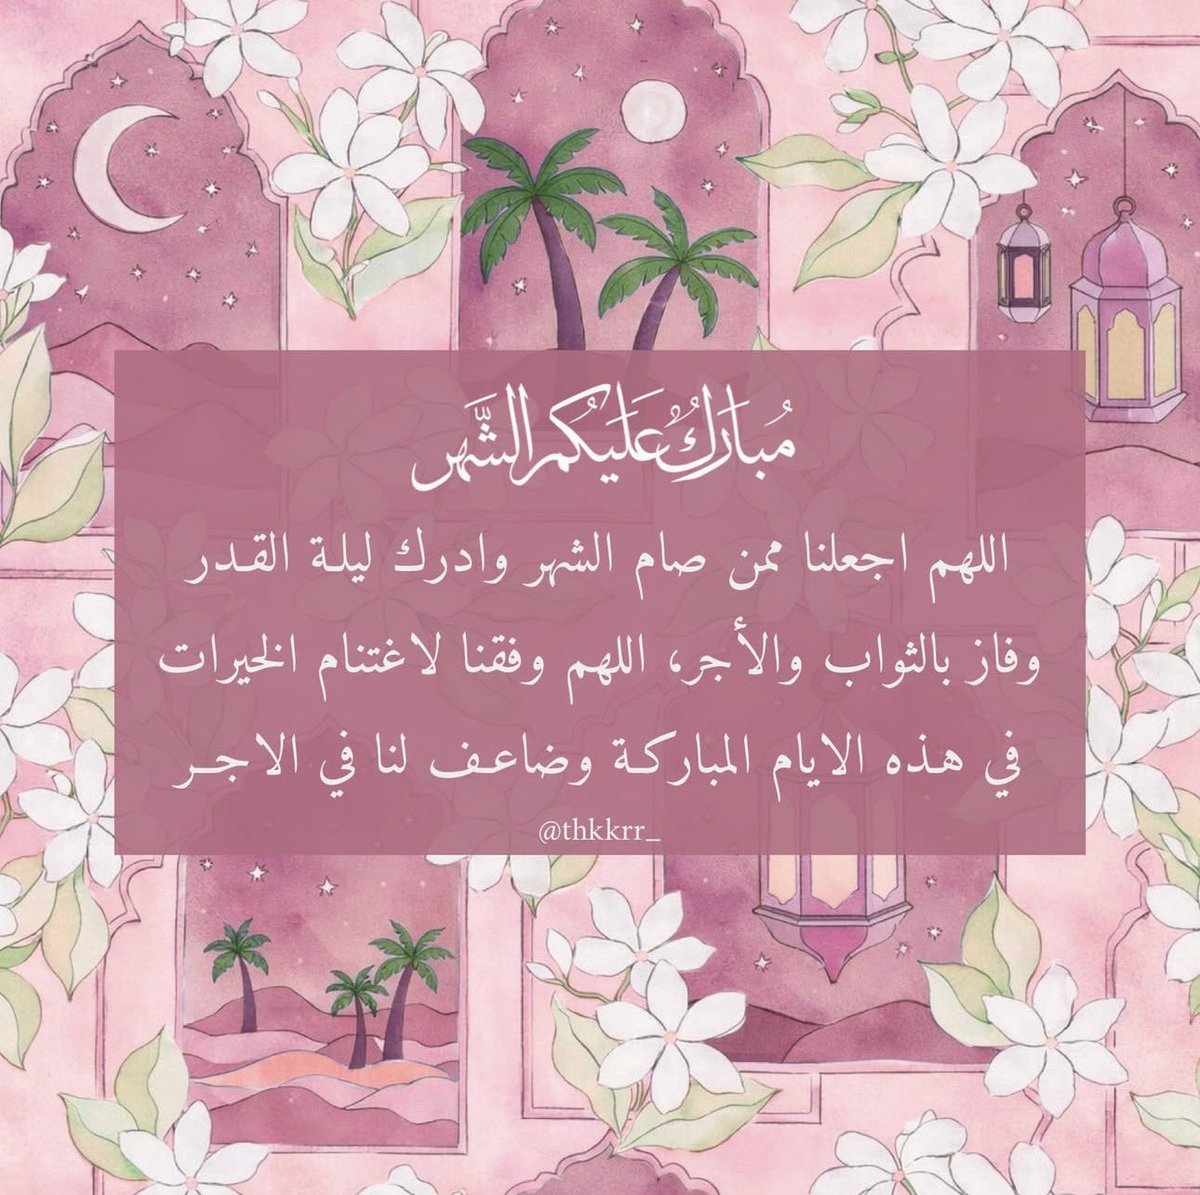 مُبارَكٌ عَلَيكُم الشَّهر
اللهم اجعلنا ممن صام الشهر وادرك ليلة القدر
وفاز بالثواب والأجر، اللهم وفقنا لاغتنام الخيرات
في هذه الايام المباركة وضاعف لنا في الاجر
@thkkrr_